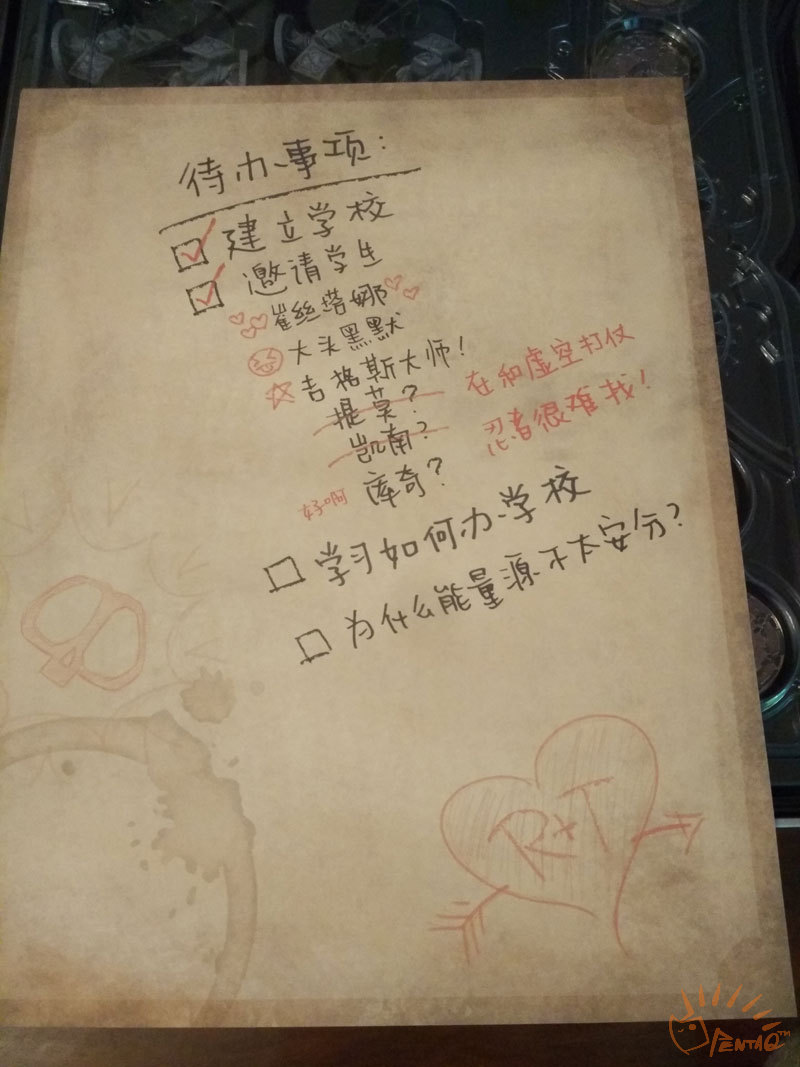 待办事项:
建立学校
邀请学生
崔丝塔娜
大头黑默
吉格斯大师!
提莫? 在和虚空打仗
凯南? 忍者很难找!
好啊 库奇?
学习如何办学校
为什么能量源不太安分?
R+T
PENTAQ™